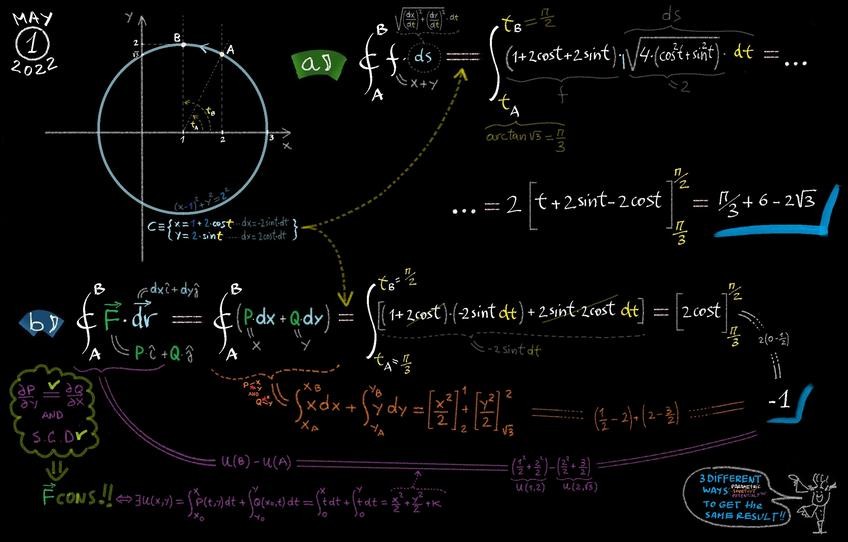 MAY
1
2022
Y
B
A
2
√3
t_B
t_A
1 2 3
X
(x-1)²+y²=2²
C≡{x=1+2·cost ... dx=-2sint·dt
y=2·sint ... dy=2cost·dt}
a)
∮_A^B f·ds = ∫_{t_A}^{t_B=π/2} (1+2cost+2sint)·√(4·(cos²t+sin²t))·dt = ...
√((dx/dt)²+(dy/dt)²)·dt
ds
x+y
f
=2
arctan√3=π/3
... = 2[t+2sint-2cost]_{π/3}^{π/2} = π/3+6-2√3
b)
∮_A^B F·dr = ∮_A^B (Pdx+Qdy) = ∫_{t_A=π/3}^{t_B=π/2} [(1+2cost)·(-2sint dt)+2sint·2cost dt] = [2cost]_{π/3}^{π/2}
dxî+dyĵ
P·î+Q·ĵ
X
Y
-2sint dt
2(0-1/2)
-1
∂P/∂y = ∂Q/∂x
AND
S.C.D
P≤X
AND
Q≤Y
∫_{x_A}^{x_B} x dx + ∫_{y_A}^{y_B} y dy = [x²/2]_2^1 + [y²/2]_{√3}^2 = (1/2-2)+(2-3/2)
U(B)-U(A)
(1²/2+2²/2)-(2²/2+3/2)
U(1,2)
U(2,√3)
F CONS.!! ⇔ ∃U(x,y)=∫_{x_0}^x P(t,y)dt+∫_{y_0}^y Q(x_0,t)dt=∫_0^x t dt+∫_0^y t dt=x²/2+y²/2+K
3 DIFFERENT
WAYS PARAMETRIC
TO GET the
SAME RESULT!!